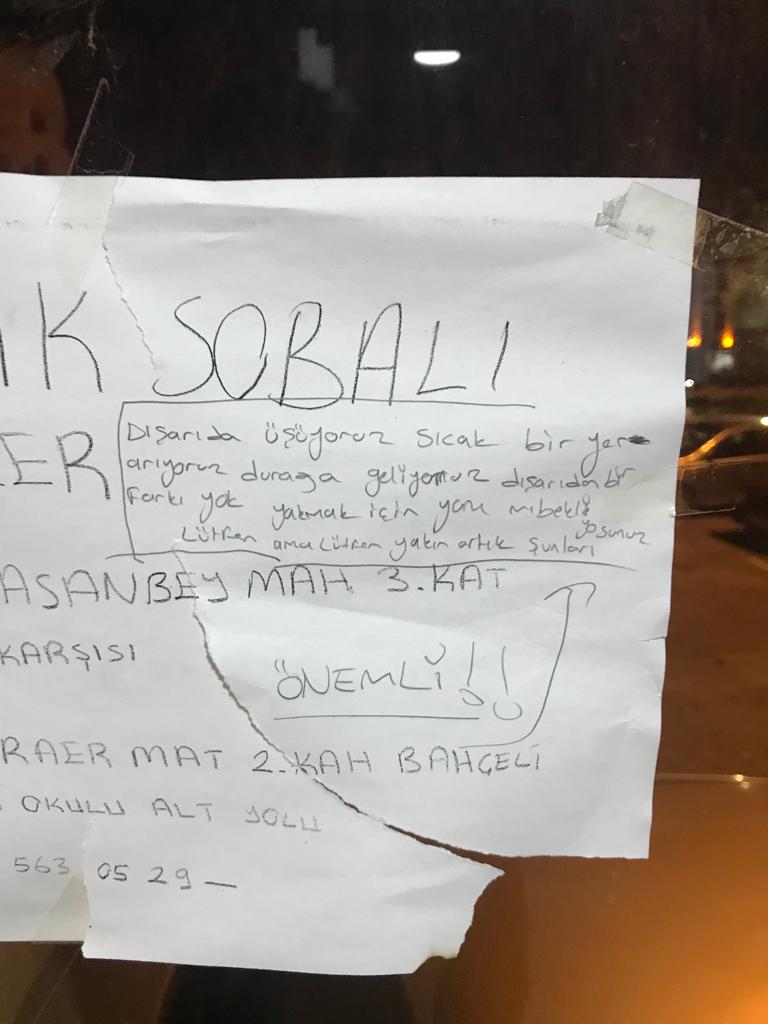 IK SOBALI
ER
Dışarıda üşüyoruz sıcak bir yer
arıyoruz durağa geliyoruz dışarıdan bir
farkı yok yakmak için yanı mıbekli
yosunuz
Lütfen ama Lütfen yakın artık şunları
ASANBEY MAH 3.KAT
KARŞISI
ÖNEMLİ!!
RAER MAT 2.KAH BAHÇELİ
OKULU ALT YOLU
563 05 29 —